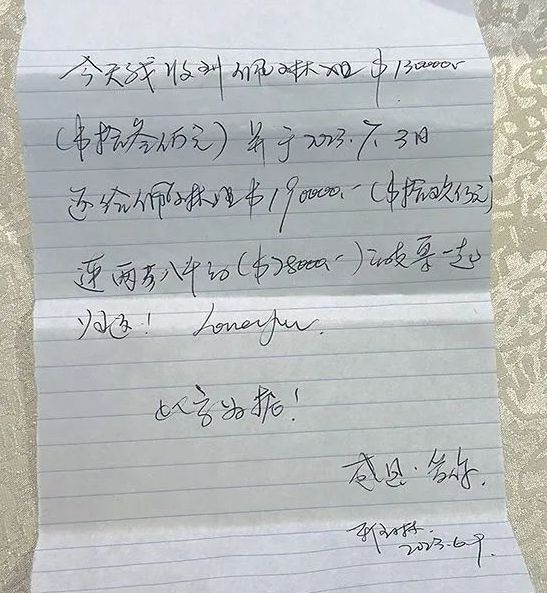 今天我收到佩琳姐$130000.-
($拾叁万元) 并于2023.7.3日
还给佩琳姐$190000.- ($拾玖万元)
连两万八千的 ($28000.-) 支票一起
归还!
此字为据!
感恩.合作.
2023.6.9